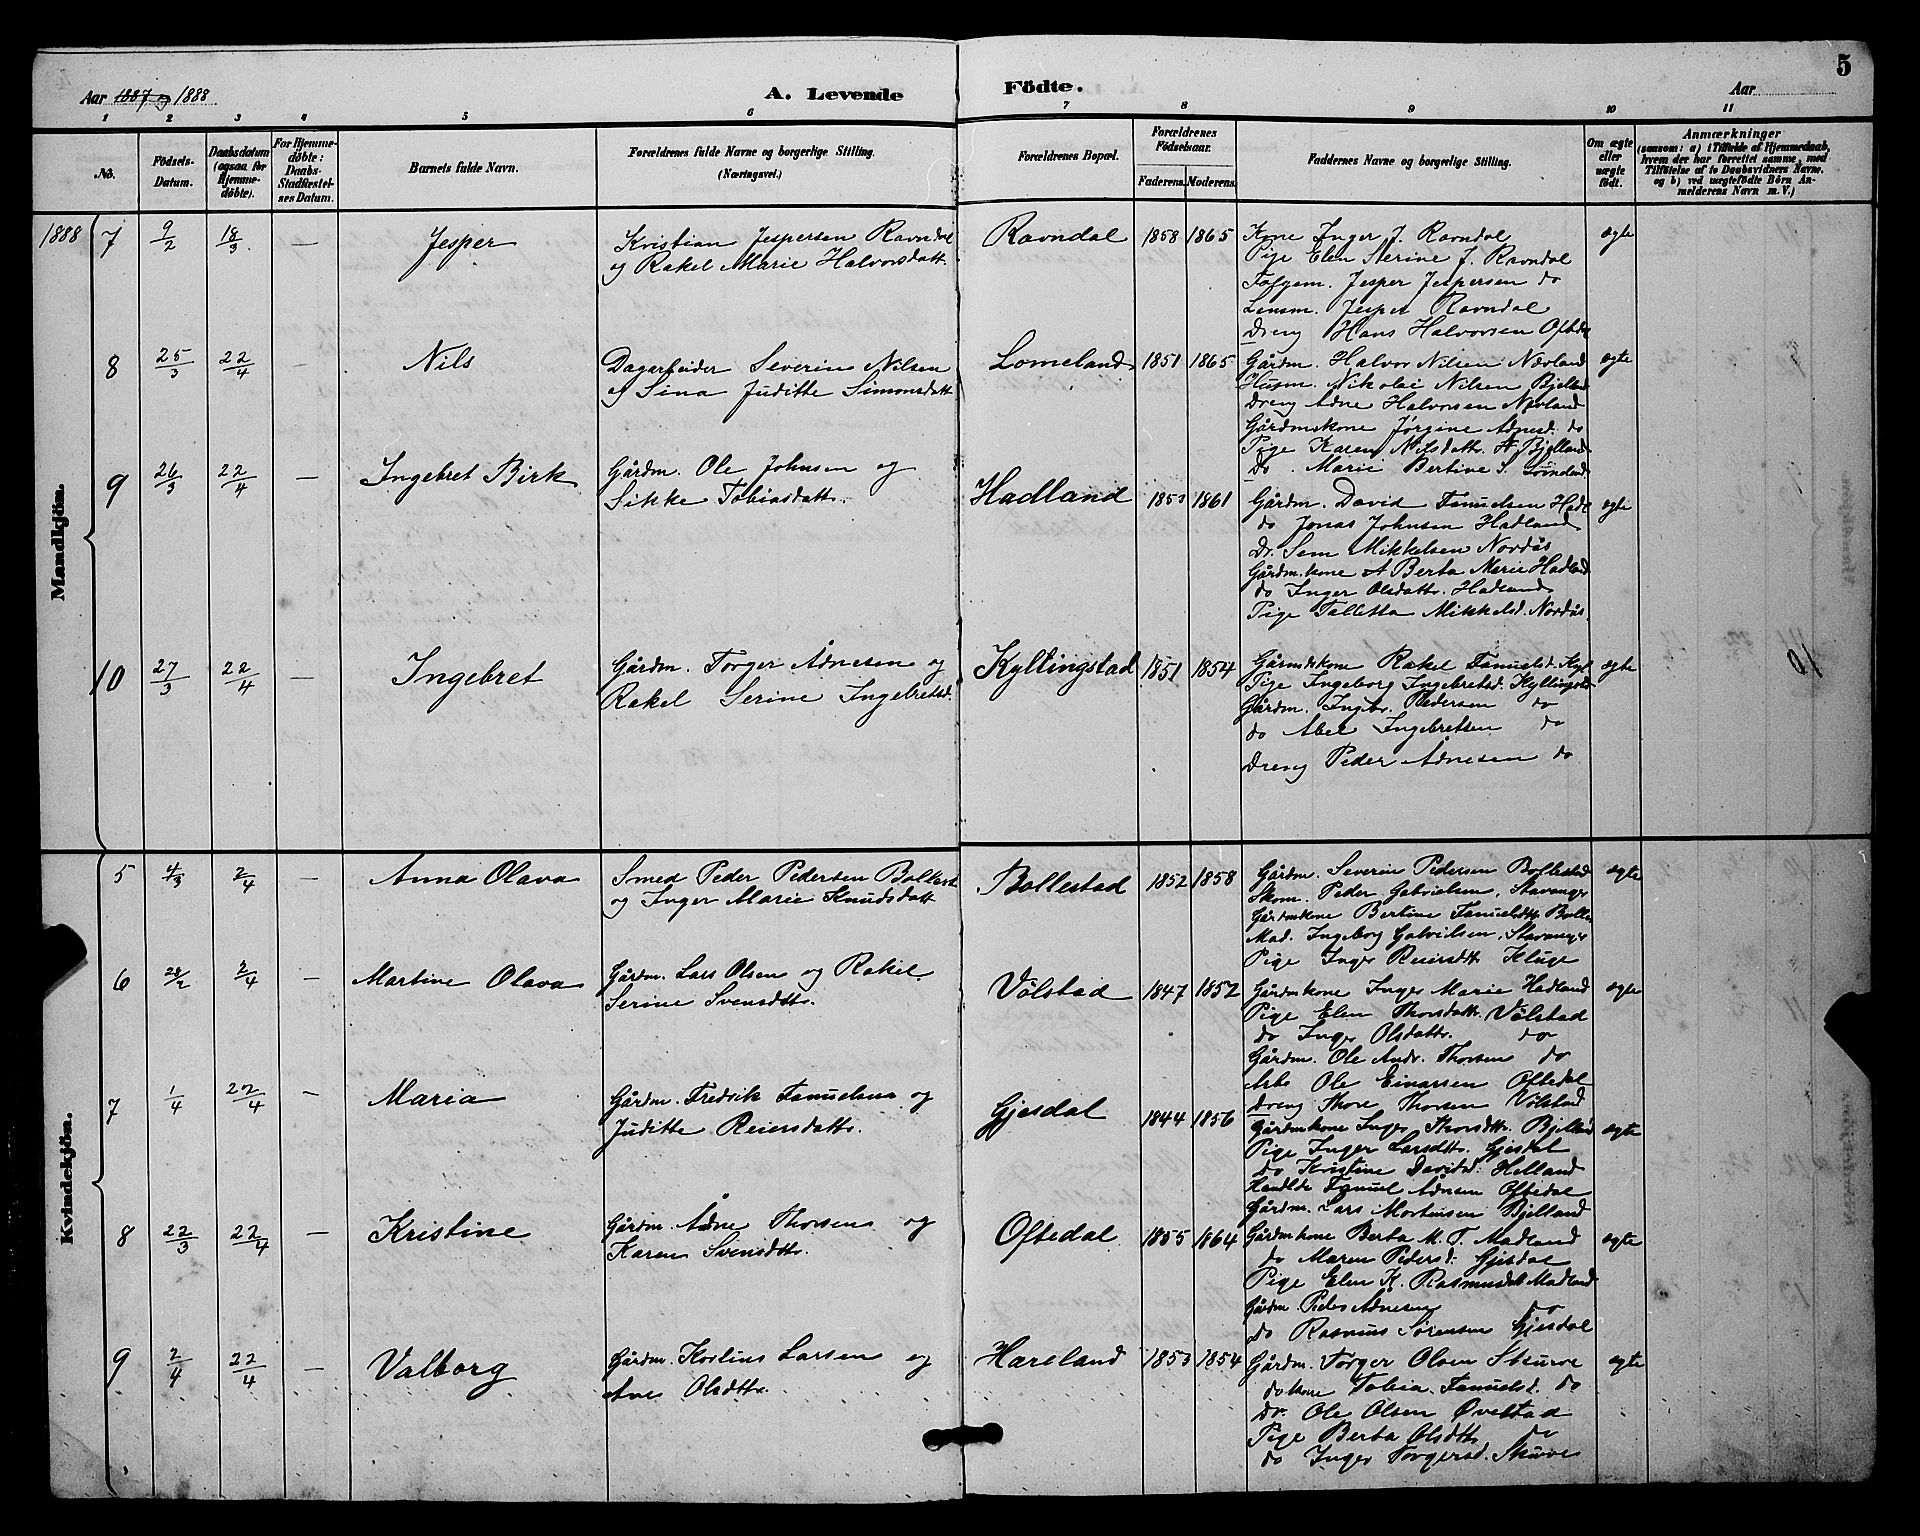 5
Aar 1887 og 1888
A. Levende Födte.
Aar
1 2 3 4 5 6 7 8 9 10 11
No.
Födsels-Datum.
Daabsdatum (ogsaa for Hjemmedöbte).
For Hjemmedöbte: Daabs-Stadfæstelses Datum.
Barnets fulde Navn.
Forældrenes fulde Navne og borgerlige Stilling. (Næringsvei.)
Forældrenes Bopæl.
Forældrenes Födselsaar.
Faderens. Moderens.
Faddernes Navne og borgerlige Stilling.
Om ægte eller uægte födt.
Anmærkninger
(saasom: a) i Tilfælde af Hjemmedaab, hvem der har forrettet samme, med Tilföielse af to Daabsvidners Navne, og b) ved uægtefödte Börn Anmelderens Navn m. V.)
Mandkjön.
1888 7 9/2 18/3 — Jesper
Kristian Jespersen Ravndal
og Rakel Marie Halvorsdatt.
Ravndal 1858 1865
Kone Inger J. Ravndal
Pige Elen Serine J. Ravndal
Folgem. Jesper Jespersen do
Lensm. Jesper Ravndal
Dreng Hans Halvorsen Oftedal
ægte
8 25/3 22/4 — Nils
Dagarbeider Severin Nilsen
og Sina Juditte Simonsdatt
Lomeland 1851 1865
Gårdm. Halvor Nilsen Nævland
Husm. Nikolai Nilsen Bjelland
Dreng Adne Halvorsen Nævland
Gårdmskone Jørgine Adnesd. do
Pige Karen Nilsdatt. Bjelland
do Marie Bertine S.
ægte
9 26/3 22/4 — Ingebret Birk
Gårdm. Ole Johnsen og
Sikke Tobiasdatt.
Hadland 1853 1861
Gårdm. David Tanuelsen Hadl
do Jonas Johnsen Hadland
Dr. Sem Mikkelsen Nordås
Gårdm.kone A Berta Marie Hadland
do Inger Olsdattr. Hadland
Pige Talletta Mikkelsd. Nordås.
ægte
10 27/3 22/4 — Ingebret
Gårdm. Torger Ådnesen og
Rakel Serine Ingebretsd.
Kyllingstad 1851 1854
Gårmdskone Rakel Tanuelsd. Kyl
Pige Ingeborg Ingebretsd. Kyllingst
Gårdm. Ingbr. Pedersen do
do Abel Ingebretsen do
Dreng Peder Ådnesen do
ægte
Kvindekjön.
5 4/3 2/4 — Anna Olava
Smed Peder Pedersen Bollest
og Inger Marie Knudsdatt
Bollestad 1852 1858
Gårdm. Severin Pedersen Bollestad
Skom. Peder Gabrielsen, Stavanger
Gårdmkone Bertine Tanuelsdtr Bolle
Mad. Ingeborg Gabrielsen, Stavanger
Pige Inger Reiersdtr Kluge
ægte
6 28/2 2/4 — Martine Olava
Gårdm. Lars Olsen og Rakel
Serine Svensdtr.
Vølstad 1847 1852
Gårdmkone Inger Marie Hadland
Pige Elen Thorsdattr. Vølstad
do Inger Olsdattr. do
Gårdm. Ole Andr. Thorsen do
Arb. Ole Einarsen Oftedal
Dreng Thore Thorsen Vølstad
ægte
7 1/4 22/4 — Maria
Gårdm. Fredrik Tanuelsen og
Juditte Reiersdattr.
Gjesdal 1844 1856
Gårdmkone Inger Thorsdtr. Bjelland
Pige Inger Larsdtr. Gjesdal
do Kristine Davidsd. Helland
Handlde Tanuel Adnesen Oftedal
Gårdm. Lars Mortensen Bjelland
ægte
8 22/3 22/4 — Kristine
Gårdm. Ådne Thorsen og
Karen Svensdtr.
Oftedal 1855 1864
Gårdmkone Berta M. T. Madland
do Maren Pedersd. Gjesdal
Pige Elen K. Rasmusdtr Madland
Gårdm. Peder Ådnesen do
do Rasmus Sørensen Gjesdal
ægte
9 2/4 22/4 — Valborg
Gårdm. Kortins Larsen og
Ane Olsdtr.
Hareland 1853 1854
Gårdm. Torger Olsen Skurve
do kone Tobia Tanuelsd. do
Dr. Ole Olsen Øvestad
Pige Berta Olsdtr. do
do Inger Torgersd. Skurve
ægte